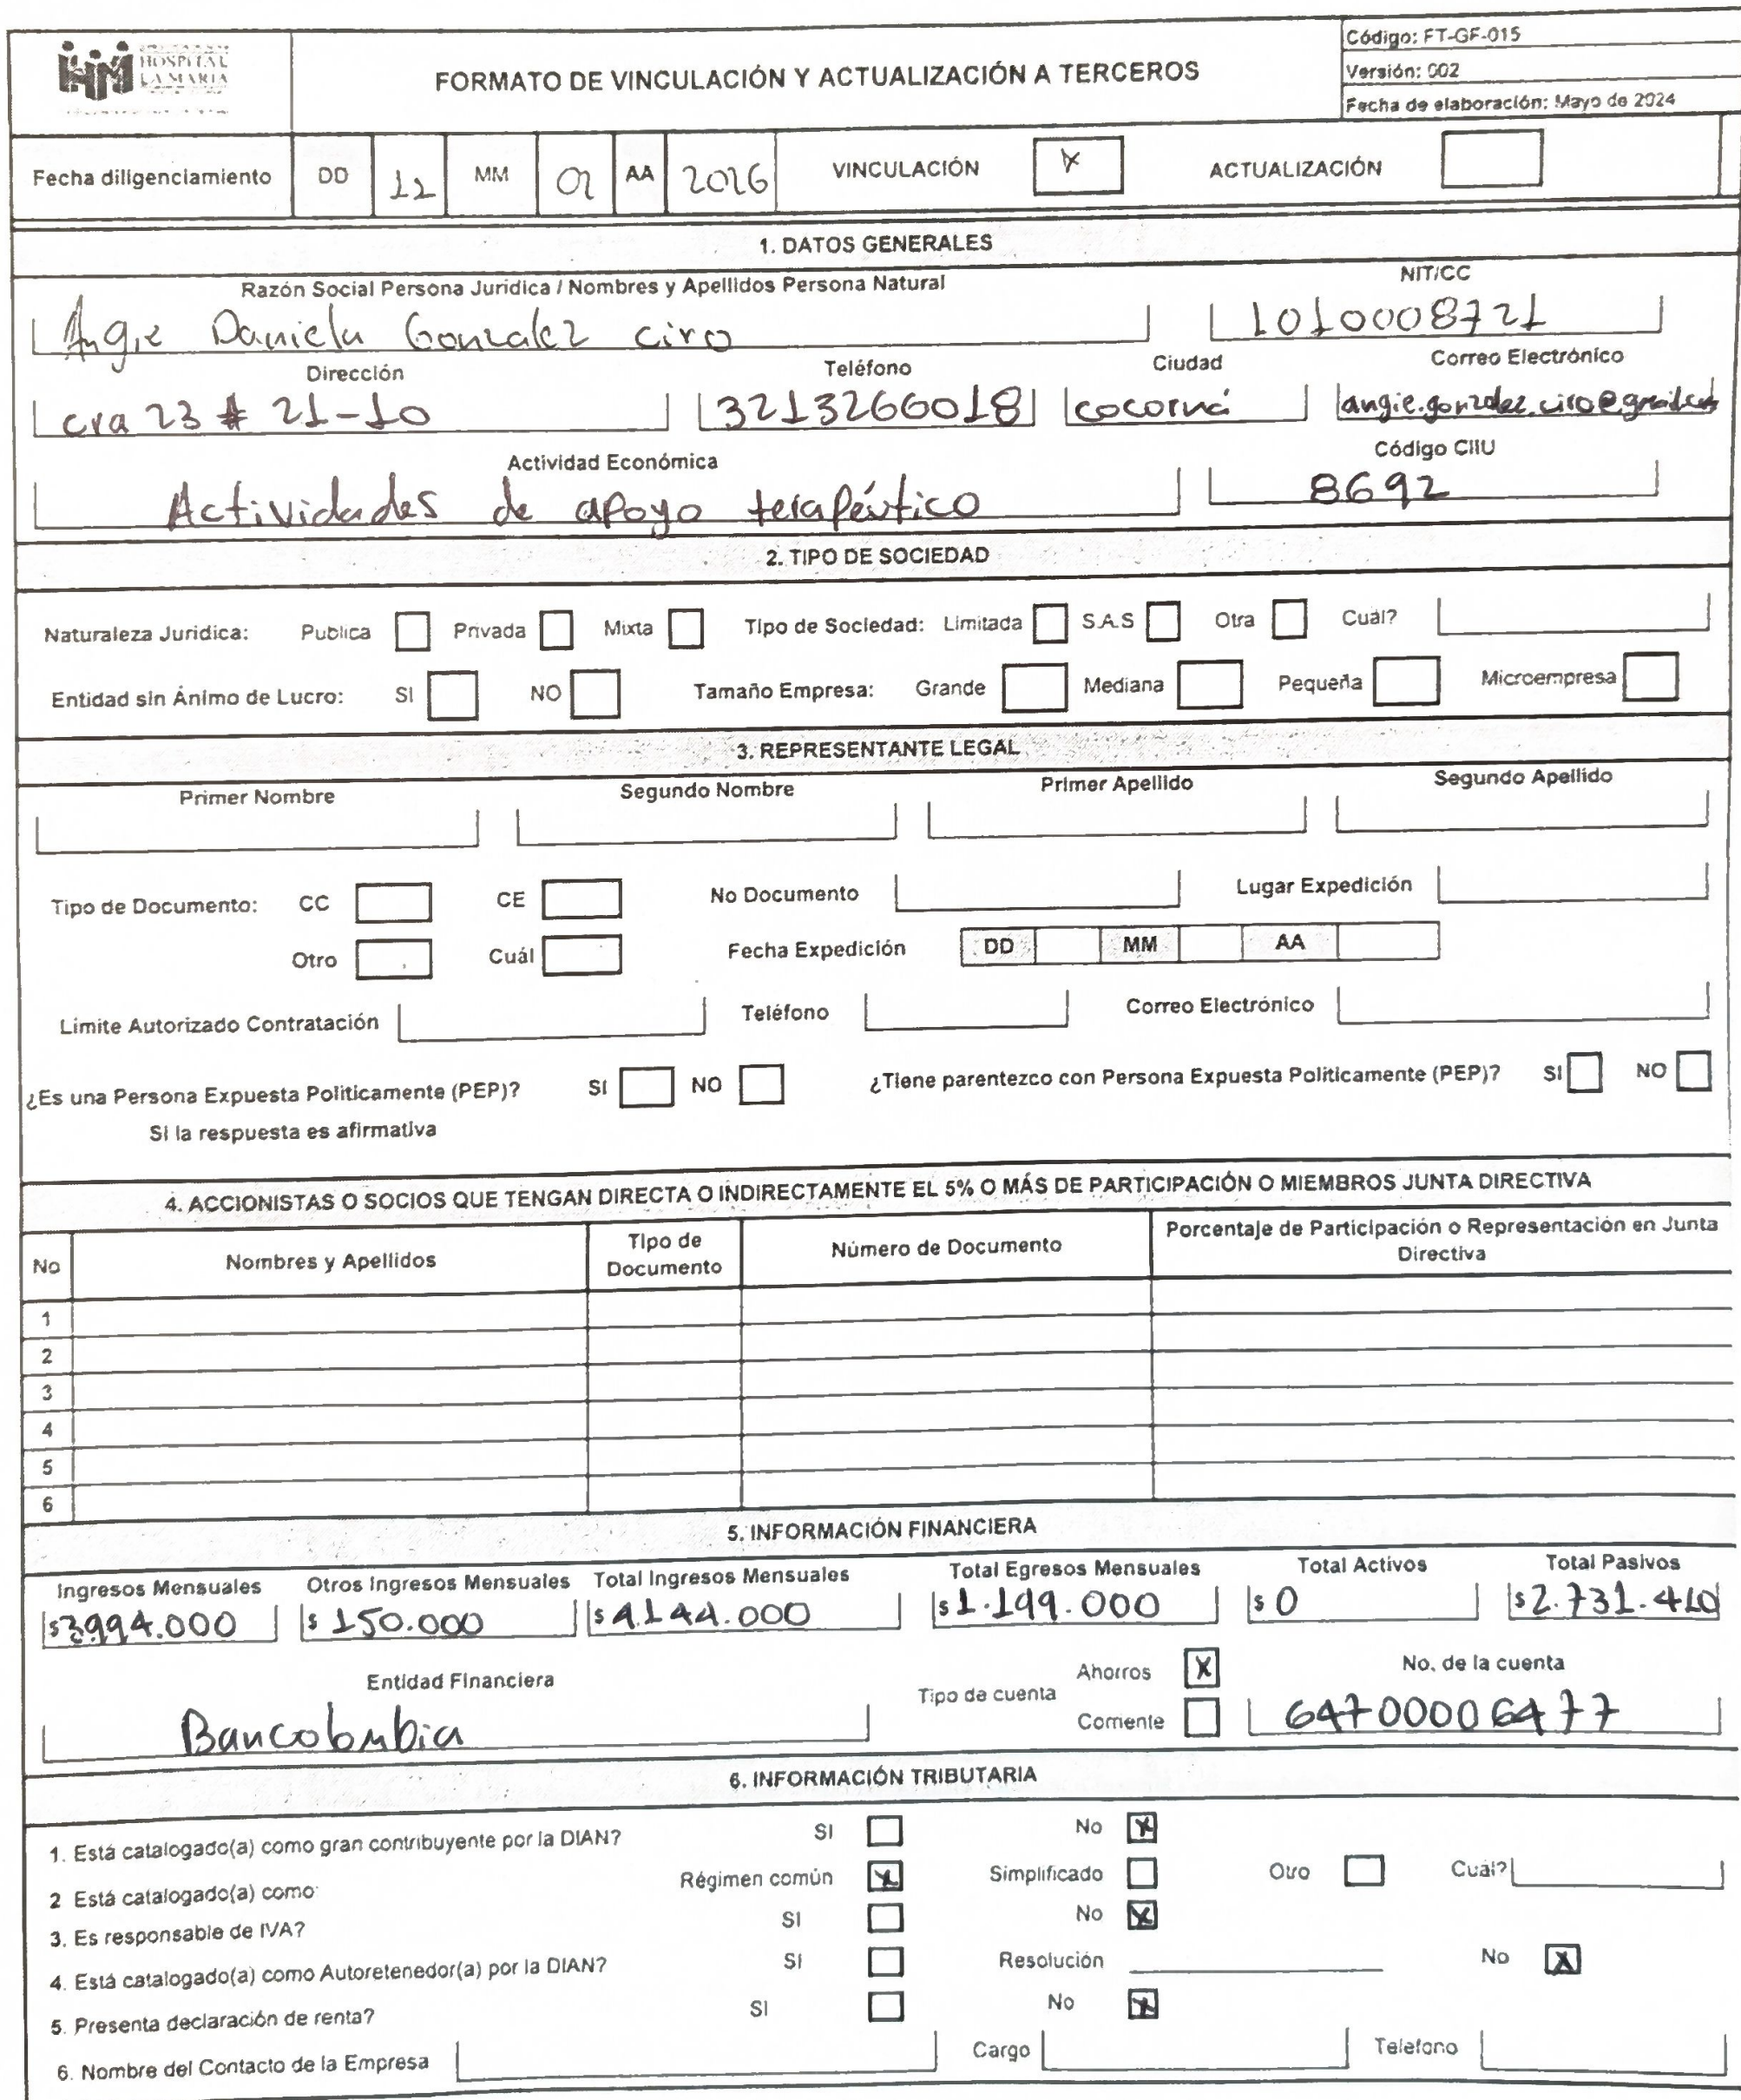 HOSPITAL
LA MARIA
FORMATO DE VINCULACIÓN Y ACTUALIZACIÓN A TERCEROS
Código: FT-GF-015
Versión: 002
Fecha de elaboración: Mayo de 2024
Fecha diligenciamiento DD 12 MM 02 AA 2026 VINCULACIÓN X ACTUALIZACIÓN
1. DATOS GENERALES
Razón Social Persona Juridica / Nombres y Apellidos Persona Natural NIT/CC
Angie Daniela Gonzalez ciro 1010008721
Dirección Teléfono Ciudad Correo Electrónico
cra 23 # 21-10 3213266018 cocorná angie.gonzalez.ciro@gmail.com
Actividad Económica Código CIIU
Actividades de apoyo terapéutico 8692
2. TIPO DE SOCIEDAD
Naturaleza Juridica: Publica Privada Mixta Tipo de Sociedad: Limitada S.A.S Otra Cuál?
Entidad sin Ánimo de Lucro: SI NO Tamaño Empresa: Grande Mediana Pequeña Microempresa
3. REPRESENTANTE LEGAL
Primer Nombre Segundo Nombre Primer Apellido Segundo Apellido
Tipo de Documento: CC CE No Documento Lugar Expedición
Otro Cuál Fecha Expedición DD MM AA
Limite Autorizado Contratación Teléfono Correo Electrónico
¿Es una Persona Expuesta Politicamente (PEP)? SI NO ¿Tiene parentezco con Persona Expuesta Politicamente (PEP)? SI NO
Si la respuesta es afirmativa
4. ACCIONISTAS O SOCIOS QUE TENGAN DIRECTA O INDIRECTAMENTE EL 5% O MÁS DE PARTICIPACIÓN O MIEMBROS JUNTA DIRECTIVA
No Nombres y Apellidos Tipo de Documento Número de Documento Porcentaje de Participación o Representación en Junta Directiva
1
2
3
4
5
6
5. INFORMACIÓN FINANCIERA
Ingresos Mensuales Otros Ingresos Mensuales Total Ingresos Mensuales Total Egresos Mensuales Total Activos Total Pasivos
$3.994.000 $ 150.000 $ 4.144.000 $1.199.000 $ 0 $2.731.410
Entidad Financiera Tipo de cuenta Ahorros X No. de la cuenta
Bancolombia Corriente 64700006477
6. INFORMACIÓN TRIBUTARIA
1. Está catalogado(a) como gran contribuyente por la DIAN? SI No X
2 Está catalogado(a) como: Régimen común X Simplificado Otro Cuál?
3. Es responsable de IVA? SI No X
4. Está catalogado(a) como Autoretenedor(a) por la DIAN? SI Resolución No X
5. Presenta declaración de renta? SI No X
6. Nombre del Contacto de la Empresa Cargo Telefono